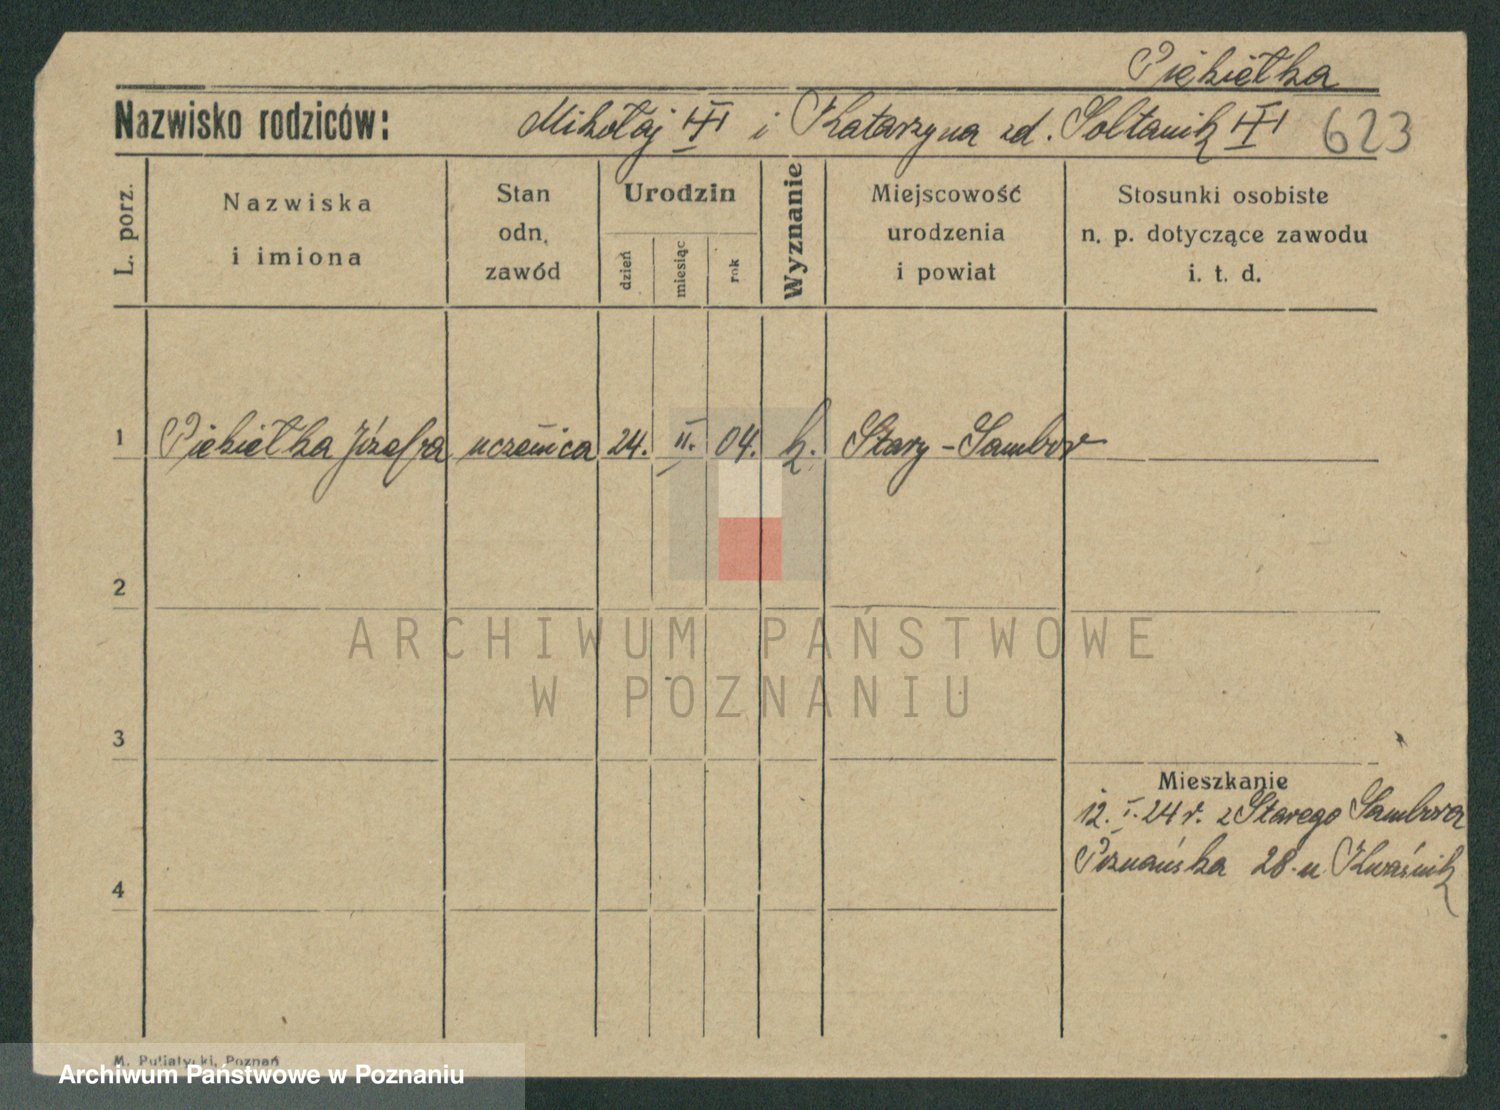 Piękiełka
Nazwisko rodziców: Mikołaj i Katarzyna zd. Sołtanik 623
L. porz. Nazwiska i imiona Stan odn. zawód Urodzin dzień miesiąc rok Wyznanie Miejscowość urodzenia i powiat Stosunki osobiste n. p. dotyczące zawodu i. t. d.
1 Piękiełka Józefa uczennica 24. II. 04. k. Stary-Sambor
2
ARCHIWUM PAŃSTWOWE
W POZNANIU
3
Mieszkanie
12. I. 24 r. z Starego Sambora
4 Poznańska 28 u Kwaśnik
M. Putiatycki, Poznań
Archiwum Państwowe w Poznaniu